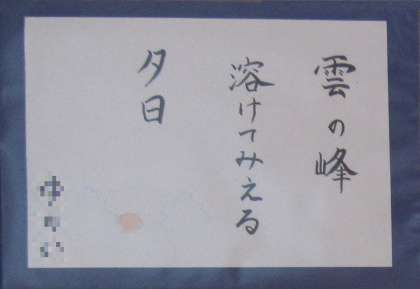 雲の峰
溶けてみえる
夕日